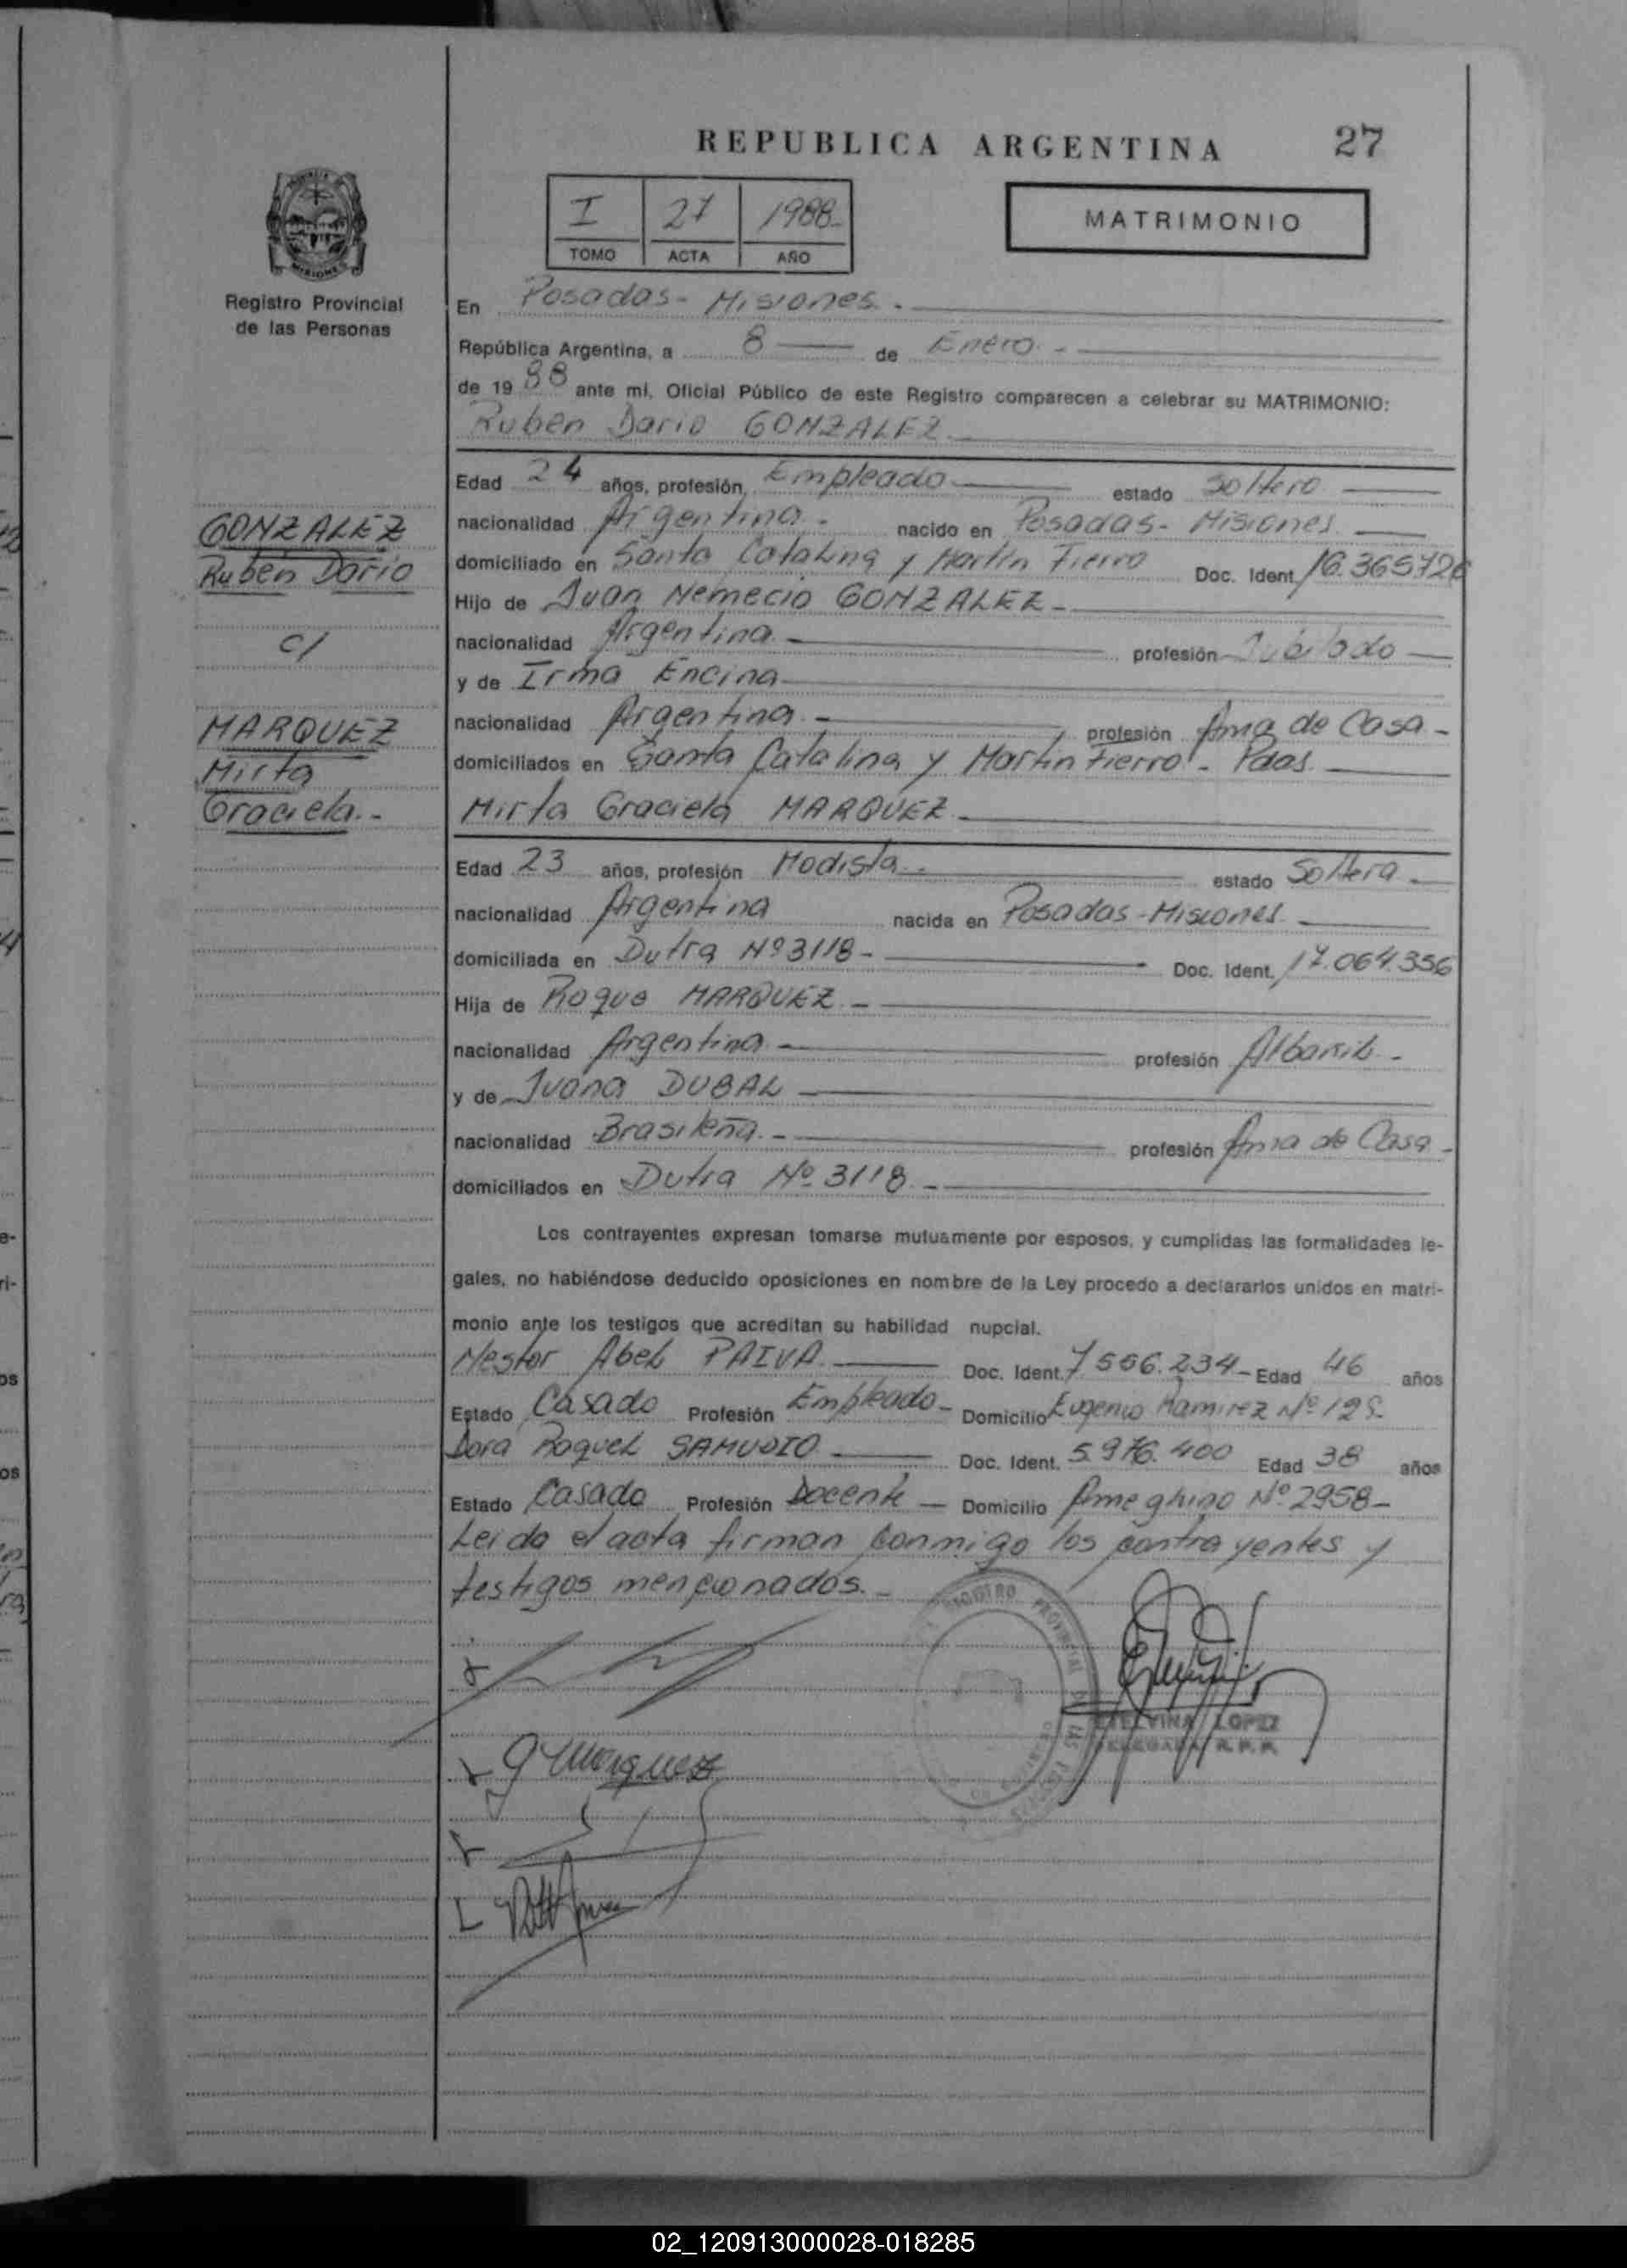 REPUBLICA ARGENTINA 27
I 27 1988
TOMO ACTA AÑO
MATRIMONIO
MISIONES
Registro Provincial
de las Personas
En Posadas - Misiones.
República Argentina, a 8 de Enero.-
de 1988 ante mí, Oficial Público de este Registro comparecen a celebrar su MATRIMONIO:
Ruben Dario GONZALEZ
Edad 24 años, profesión, Empleado estado Soltero
GONZALEZ
Ruben Dario
c/
MARQUEZ
Mirta
Graciela.-
nacionalidad Argentina.- nacido en Posadas - Misiones
domiciliado en Santa Catalina y Martín Fierro Doc. Ident. 16.365.726
Hijo de Juan Nemecio GONZALEZ -
nacionalidad Argentina profesión Jubilado
y de Irma Encina
nacionalidad Argentina.- profesión Ama de Casa -
domiciliados en Santa Catalina y Martin Fierro - Pdas.
Mirta Graciela MARQUEZ
Edad 23 años, profesión Modista.- estado Soltera.
nacionalidad Argentina nacida en Posadas - Misiones
domiciliada en Dutra Nº 3118 - Doc. Ident. 17.064.356
Hija de Roque MARQUEZ -
nacionalidad Argentina profesión Albañil.-
y de Juana DUBAL
nacionalidad Brasileña.- profesión Ama de Casa -
domiciliados en Dutra Nº 3118.-
Los contrayentes expresan tomarse mutuamente por esposos, y cumplidas las formalidades le-
gales, no habiéndose deducido oposiciones en nombre de la Ley procedo a declararlos unidos en matri-
monio ante los testigos que acreditan su habilidad nupcial.
Nestor Abel PAIVA Doc. Ident. 7.506.234 - Edad 46 años
Estado Casado Profesión Empleado - Domicilio Eugenio Ramirez Nº
Dora Raquel SAMUDIO Doc. Ident. 5.976.400 Edad 38 años
Estado Casado Profesión Docente - Domicilio Ameghino Nº 2958 -
Leida el acta firman conmigo los contrayentes y
testigos mencionados.-
REGISTRO PROVINCIAL DE LAS
ETELVINA LOPEZ
DELEGADA R. P. P.
Marquez
02_120913000028-018285